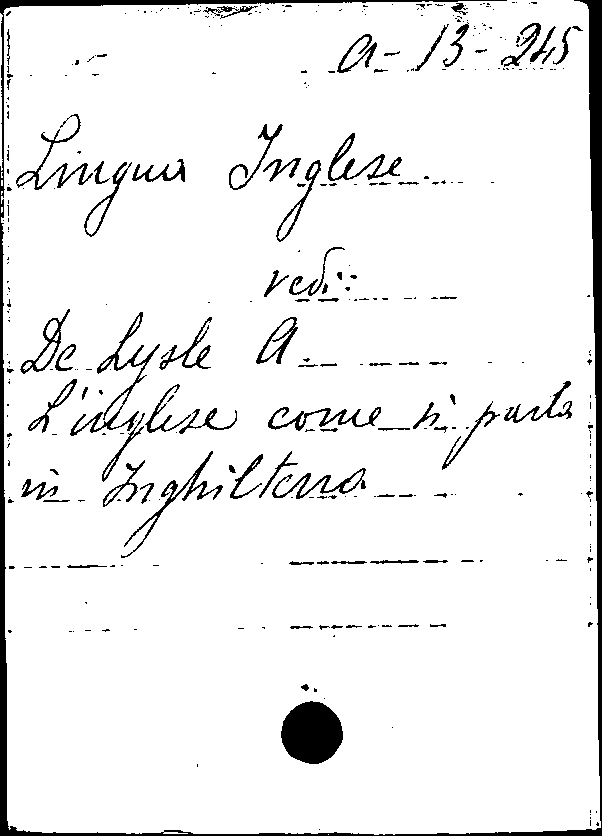 a-13-245
Lingua Inglese.
vedi:
De Lysle A.
L'inglese come si parla
in Inghilterra